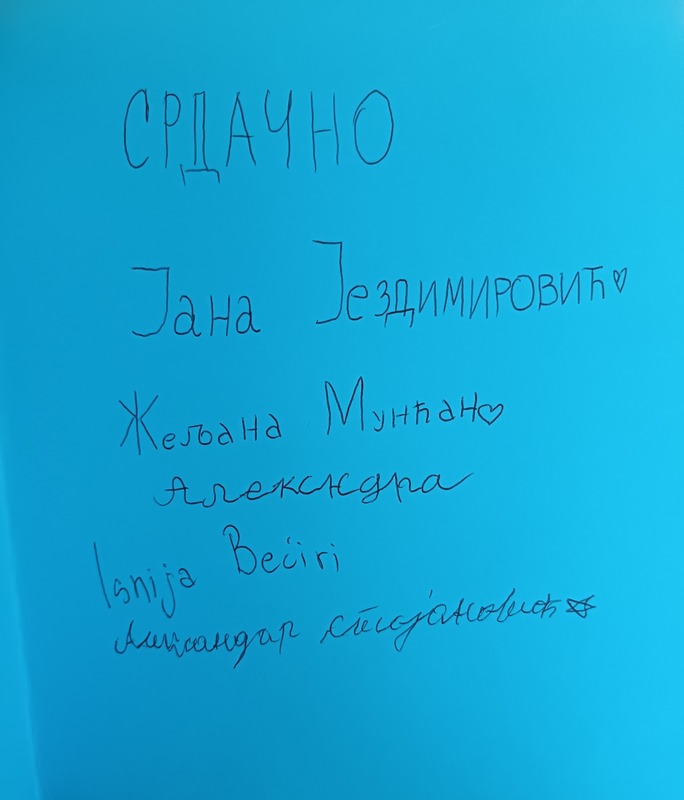 СРДАЧНО
Јана Јездимировић
Жељана Мунћан
Александра
Isnija Bećiri
Александар Стојановић